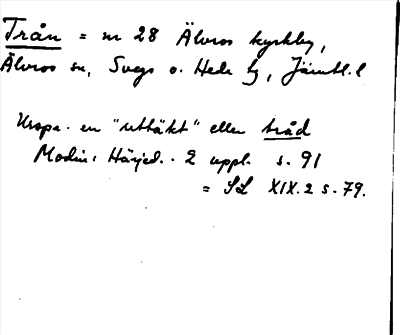 Trån = nr 28 Älvros kyrkby,
Älvros sn, Svegs o. Hede tg, Jämtl. l
Urspr. en "uttäkt" eller tråd
Modin: Härjed. . 2 uppl. s. 91
= SL XIX.2 s. 79.